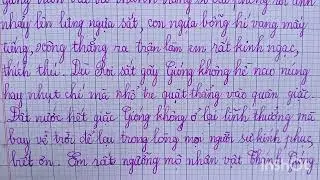 nhảy lên lưng ngựa sắt, con ngựa bỗng hí vang mấy
tiếng, xông thẳng ra trận làm em rất kinh ngạc,
thích thú. Dù roi sắt gãy Gióng không hề nao núng
hay nhụt chí mà nhổ bè quật thẳng vào quân giặc.
Đất nước hết giặc Gióng không ở lại lĩnh thưởng mà
bay về trời để lại trong lòng mọi người sự kính phục,
biết ơn. Em rất ngưỡng mộ nhân vật Thánh Gióng